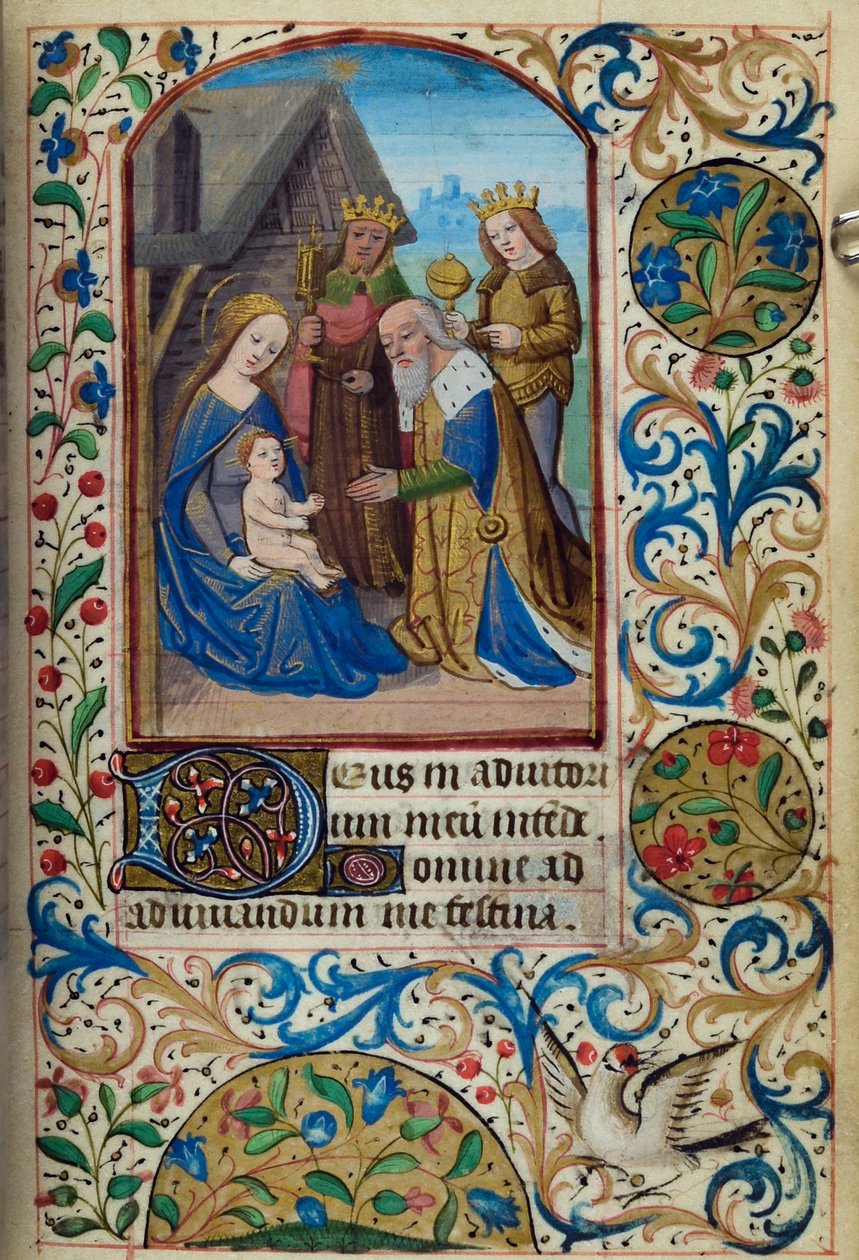 Deus in adiutori
um meū intēde.
Domine ad
adiuuandum me festina.